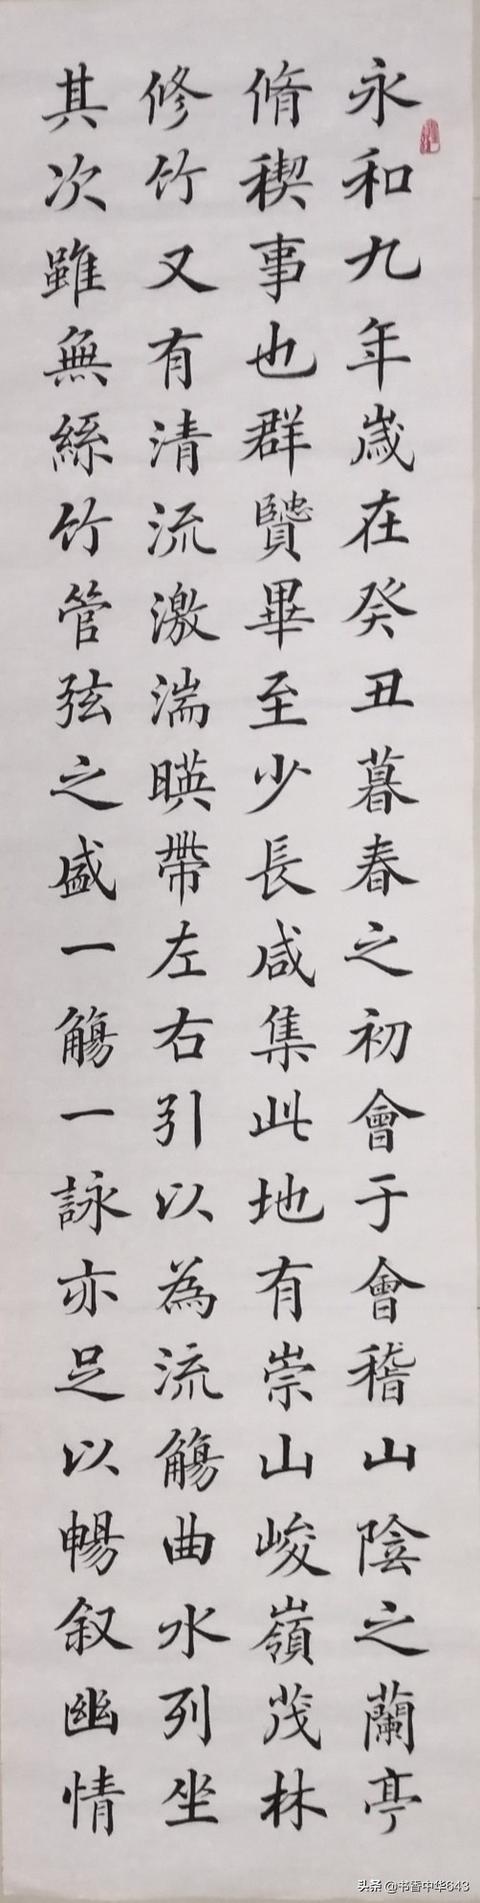 永和九年歲在癸丑暮春之初會于會稽山陰之蘭亭
脩稧事也群賢畢至少長咸集此地有崇山峻嶺茂林
修竹又有清流激湍暎帶左右引以為流觴曲水列坐
其次雖無絲竹管弦之盛一觴一詠亦足以暢叙幽情
头条 @书香中华643